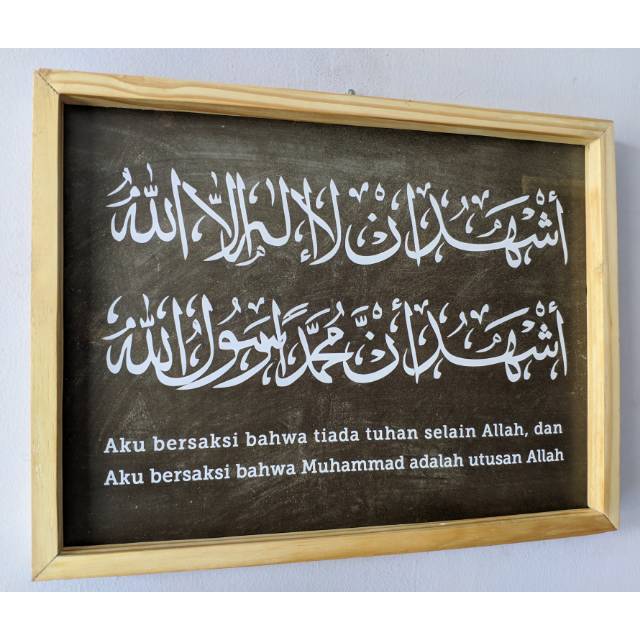 أشهد ان لا إله إلا الله
أشهد أن محمدا رسول الله
Aku bersaksi bahwa tiada tuhan selain Allah, dan
Aku bersaksi bahwa Muhammad adalah utusan Allah